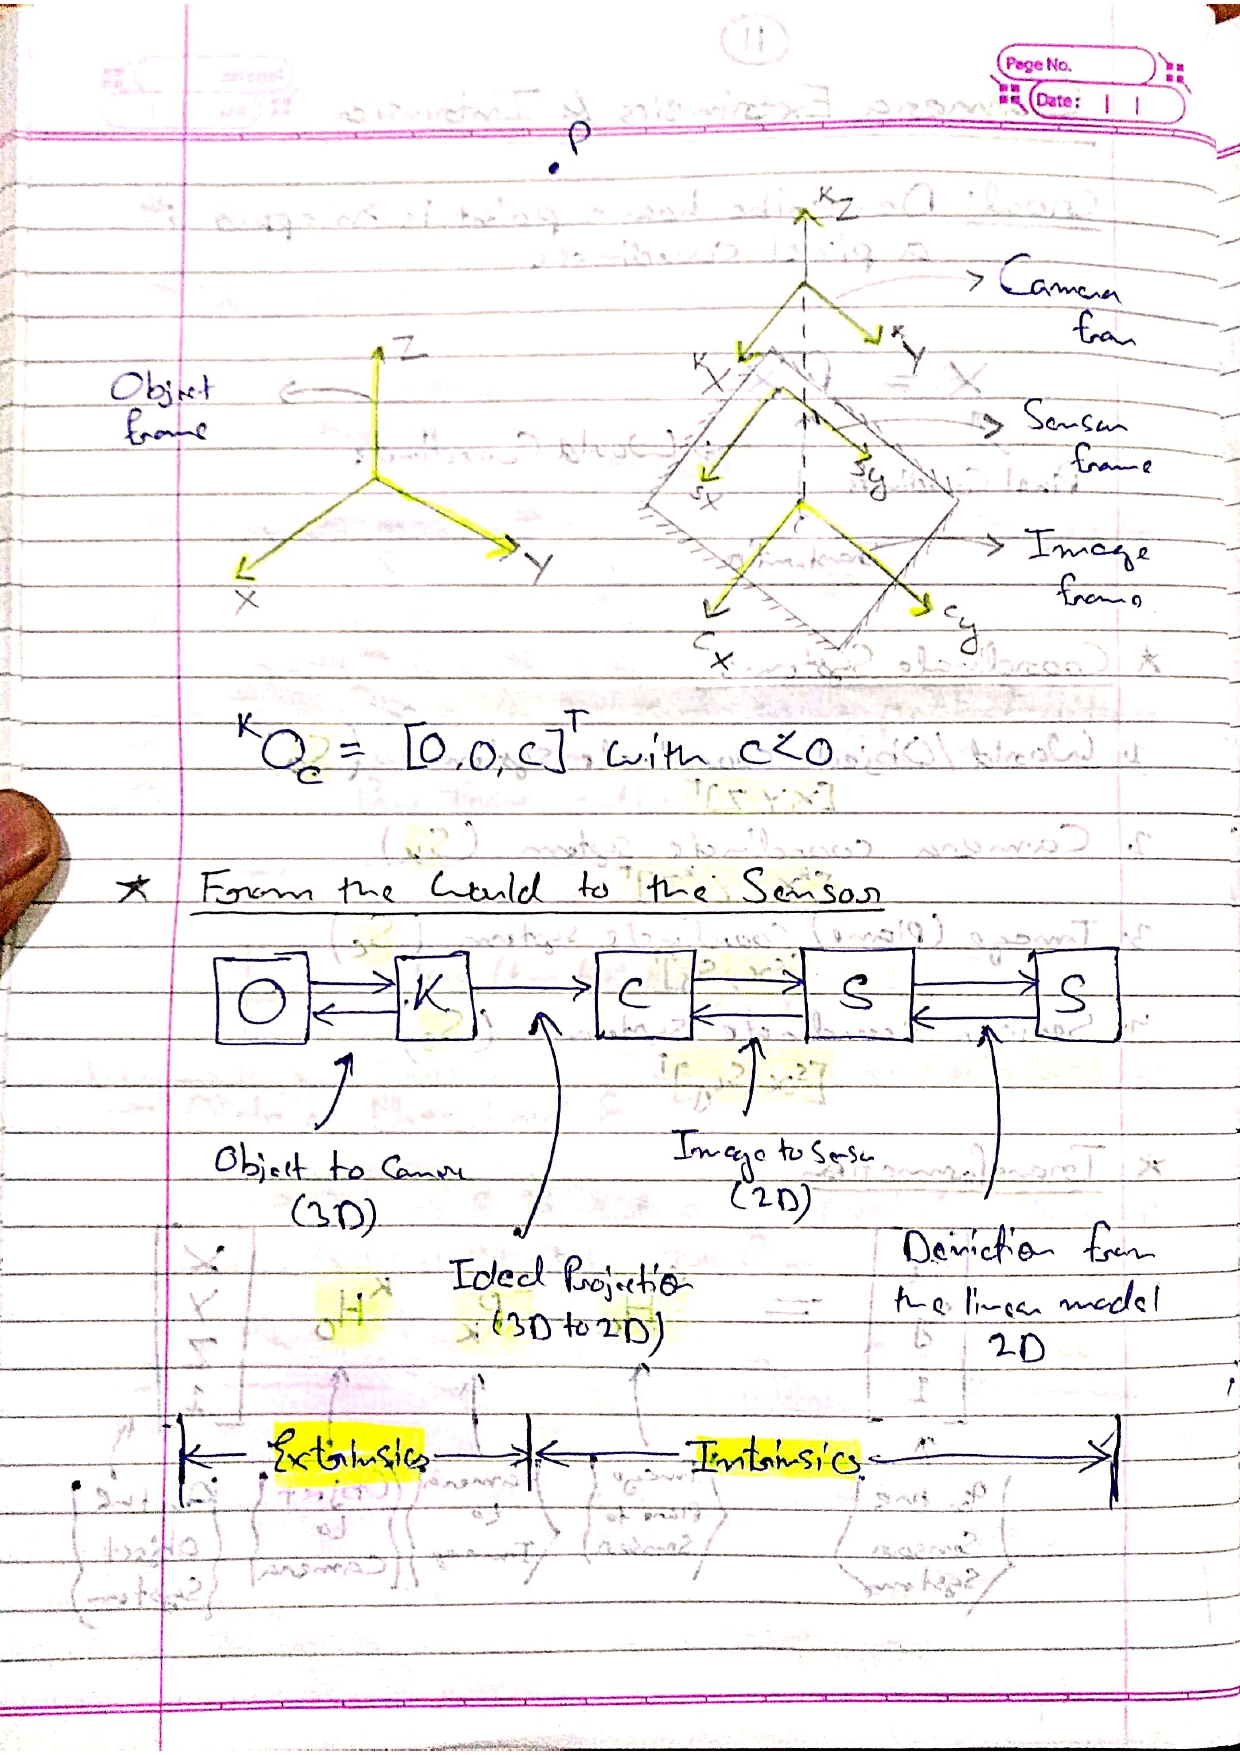 11
Page No.
Date: | |
P
K Z
Camera
fram
K X
K Y
Z
Object
frame
Sensor
frame
S x
S y
X
Y
Image
frame
C x
C y
ᴷO_c = [0,0,c]ᵀ with c<0
* From the world to the Sensor
O K C S S
Object to Camera
(3D)
Image to Sensor
(2D)
Ideal Projection
(3D to 2D)
Deviction from
the linear model
2D
Extrinsics Intrinsics